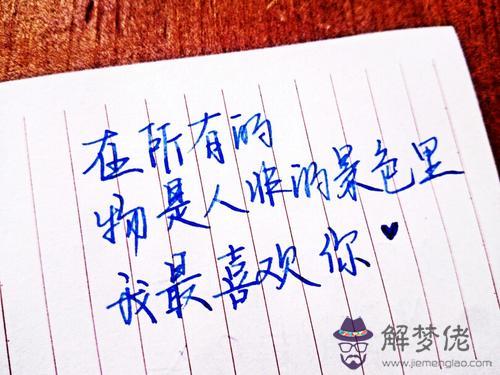 在所有的
物是人非的景色里
我最喜欢你
解梦佬
www.jiemenglao.com